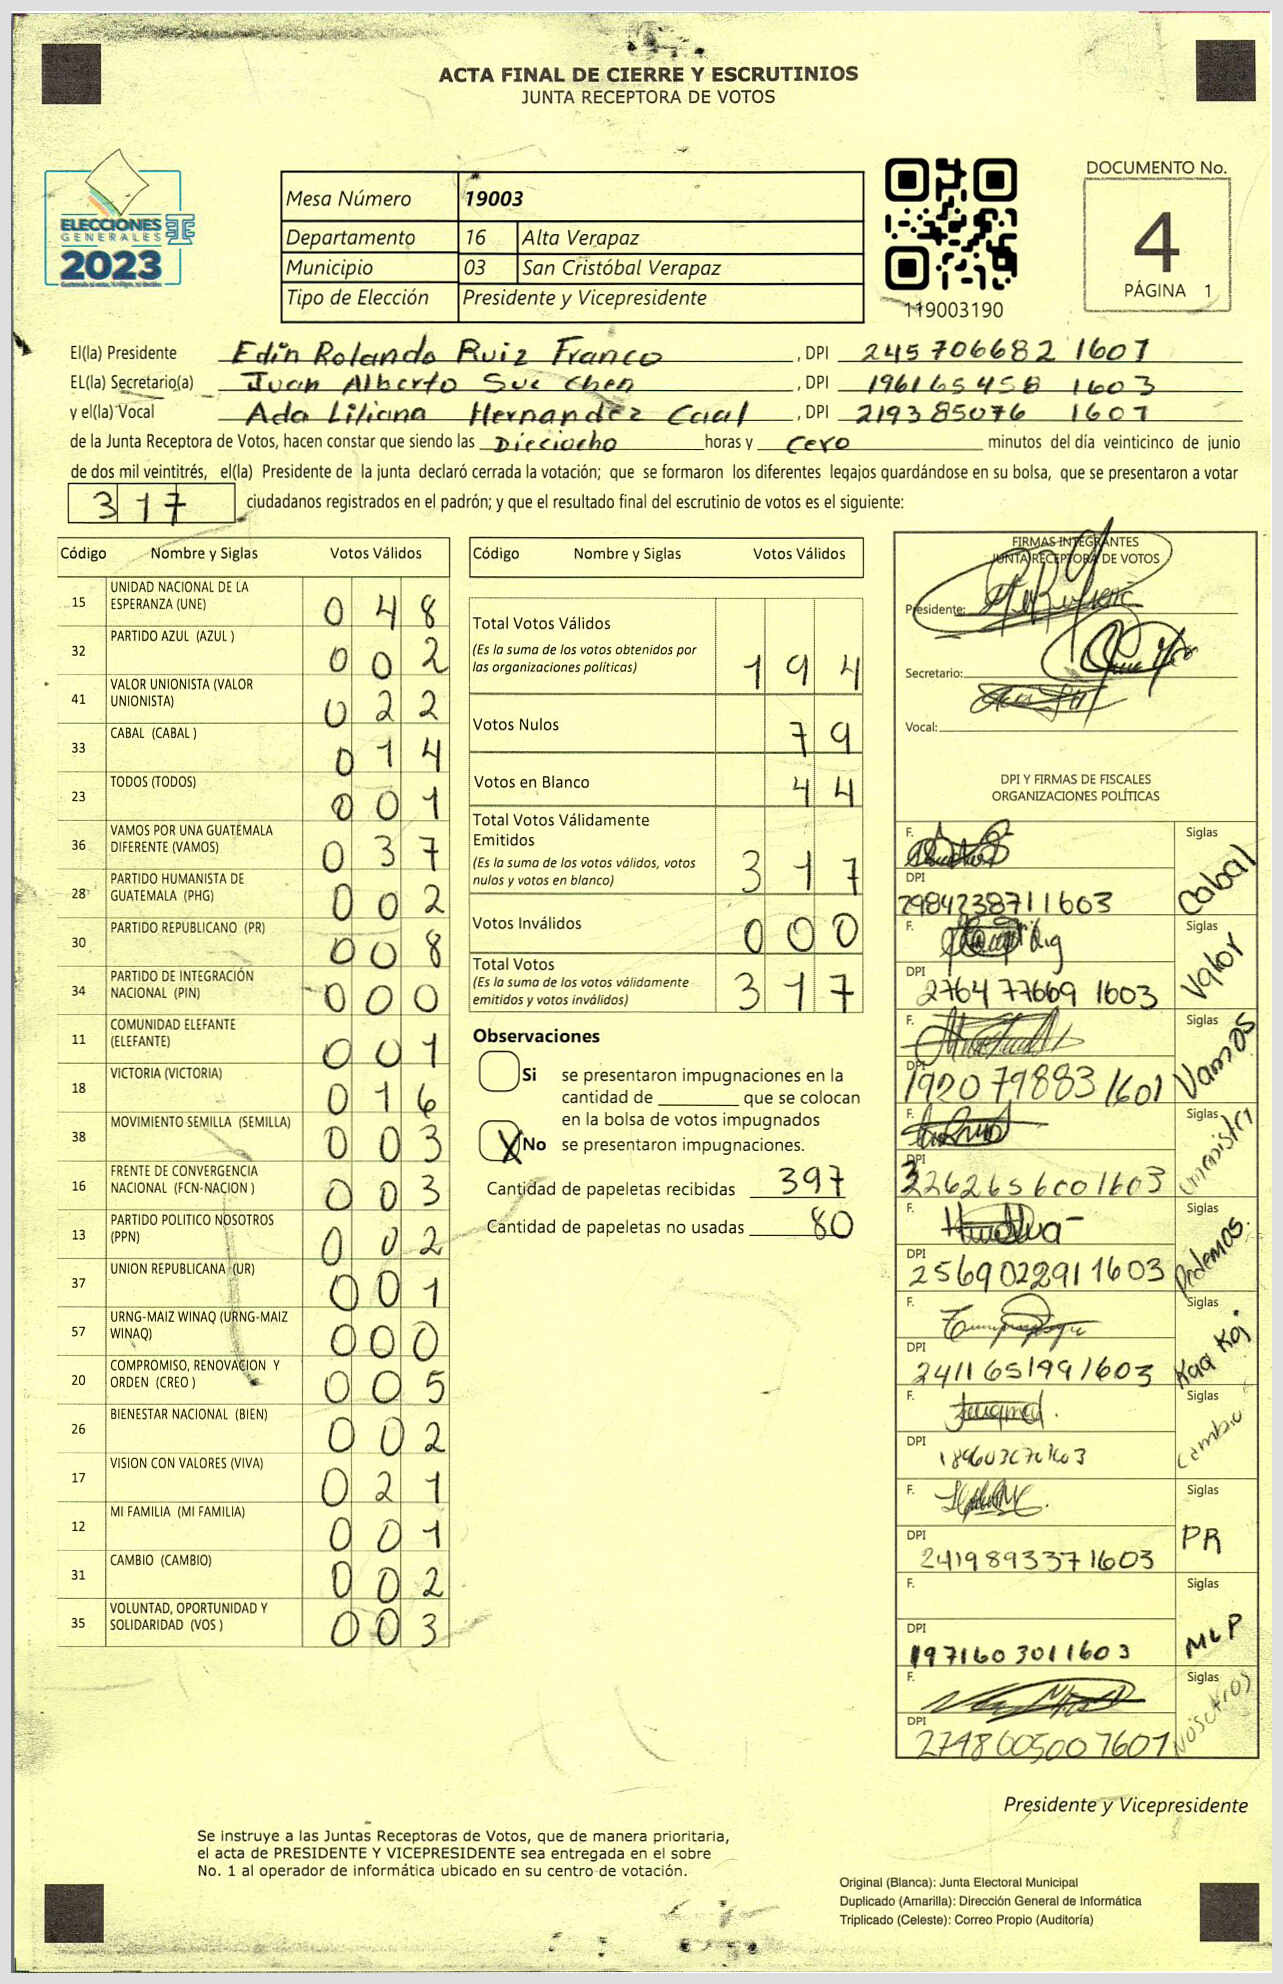 ACTA FINAL DE CIERRE Y ESCRUTINIOS
JUNTA RECEPTORA DE VOTOS
ELECCIONES
GENERALES
2023
Mesa Número 19003
Departamento 16 Alta Verapaz
Municipio 03 San Cristóbal Verapaz
Tipo de Elección Presidente y Vicepresidente
119003190
DOCUMENTO No.
4
PÁGINA 1
El(la) Presidente Edin Rolando Ruiz Franco, DPI 245706682 1607
EL(la) Secretario(a) Juan Alberto Sue Chen, DPI 196165458 1603
y el(la) Vocal Ada Liliana Hernandez Caal, DPI 219385076 1607
de la Junta Receptora de Votos, hacen constar que siendo las Dieciocho horas y cero minutos del día veinticinco de junio
de dos mil veintitrés, el(la) Presidente de la junta declaró cerrada la votación; que se formaron los diferentes legajos guardándose en su bolsa, que se presentaron a votar
317 ciudadanos registrados en el padrón; y que el resultado final del escrutinio de votos es el siguiente:
Código Nombre y Siglas Votos Válidos
15 UNIDAD NACIONAL DE LA ESPERANZA (UNE) 048
32 PARTIDO AZUL (AZUL ) 002
41 VALOR UNIONISTA (VALOR UNIONISTA) 022
33 CABAL (CABAL ) 014
23 TODOS (TODOS) 001
36 VAMOS POR UNA GUATEMALA DIFERENTE (VAMOS) 037
28 PARTIDO HUMANISTA DE GUATEMALA (PHG) 002
30 PARTIDO REPUBLICANO (PR) 008
34 PARTIDO DE INTEGRACIÓN NACIONAL (PIN) 000
11 COMUNIDAD ELEFANTE (ELEFANTE) 001
18 VICTORIA (VICTORIA) 016
38 MOVIMIENTO SEMILLA (SEMILLA) 003
16 FRENTE DE CONVERGENCIA NACIONAL (FCN-NACION ) 003
13 PARTIDO POLITICO NOSOTROS (PPN) 002
37 UNION REPUBLICANA (UR) 001
57 URNG-MAIZ WINAQ (URNG-MAIZ WINAQ) 000
20 COMPROMISO, RENOVACION Y ORDEN (CREO ) 005
26 BIENESTAR NACIONAL (BIEN) 002
17 VISION CON VALORES (VIVA) 021
12 MI FAMILIA (MI FAMILIA) 001
31 CAMBIO (CAMBIO) 002
35 VOLUNTAD, OPORTUNIDAD Y SOLIDARIDAD (VOS ) 003
Código Nombre y Siglas Votos Válidos
Total Votos Válidos
(Es la suma de los votos obtenidos por
las organizaciones políticas) 194
Votos Nulos 79
Votos en Blanco 44
Total Votos Válidamente
Emitidos
(Es la suma de los votos válidos, votos
nulos y votos en blanco) 317
Votos Inválidos 000
Total Votos
(Es la suma de los votos válidamente
emitidos y votos inválidos) 317
Observaciones
Si se presentaron impugnaciones en la
cantidad de ________ que se colocan
en la bolsa de votos impugnados
X No se presentaron impugnaciones.
Cantidad de papeletas recibidas 397
Cantidad de papeletas no usadas 80
FIRMAS INTEGRANTES
JUNTA RECEPTORA DE VOTOS
Presidente:
Secretario:
Vocal:
DPI Y FIRMAS DE FISCALES
ORGANIZACIONES POLÍTICAS
F. Siglas Cabal
DPI 2984238711603
F. Siglas Valor
DPI 2764 77669 1603
F. Siglas Vamos
DPI 1920 79883 1601
F. Siglas unionista
DPI
F. Siglas Podemos.
DPI 2569022911603
F. Siglas Kaa Koj
DPI 2411651991603
F. Siglas Cambio
DPI
F. Siglas PR
DPI 2419893371603
F. Siglas MLP
DPI 1971603011603
F. Siglas Nosotros
DPI 2748005007607
Presidente y Vicepresidente
Se instruye a las Juntas Receptoras de Votos, que de manera prioritaria,
el acta de PRESIDENTE Y VICEPRESIDENTE sea entregada en el sobre
No. 1 al operador de informática ubicado en su centro de votación.
Original (Blanca): Junta Electoral Municipal
Duplicado (Amarilla): Dirección General de Informática
Triplicado (Celeste): Correo Propio (Auditoría)